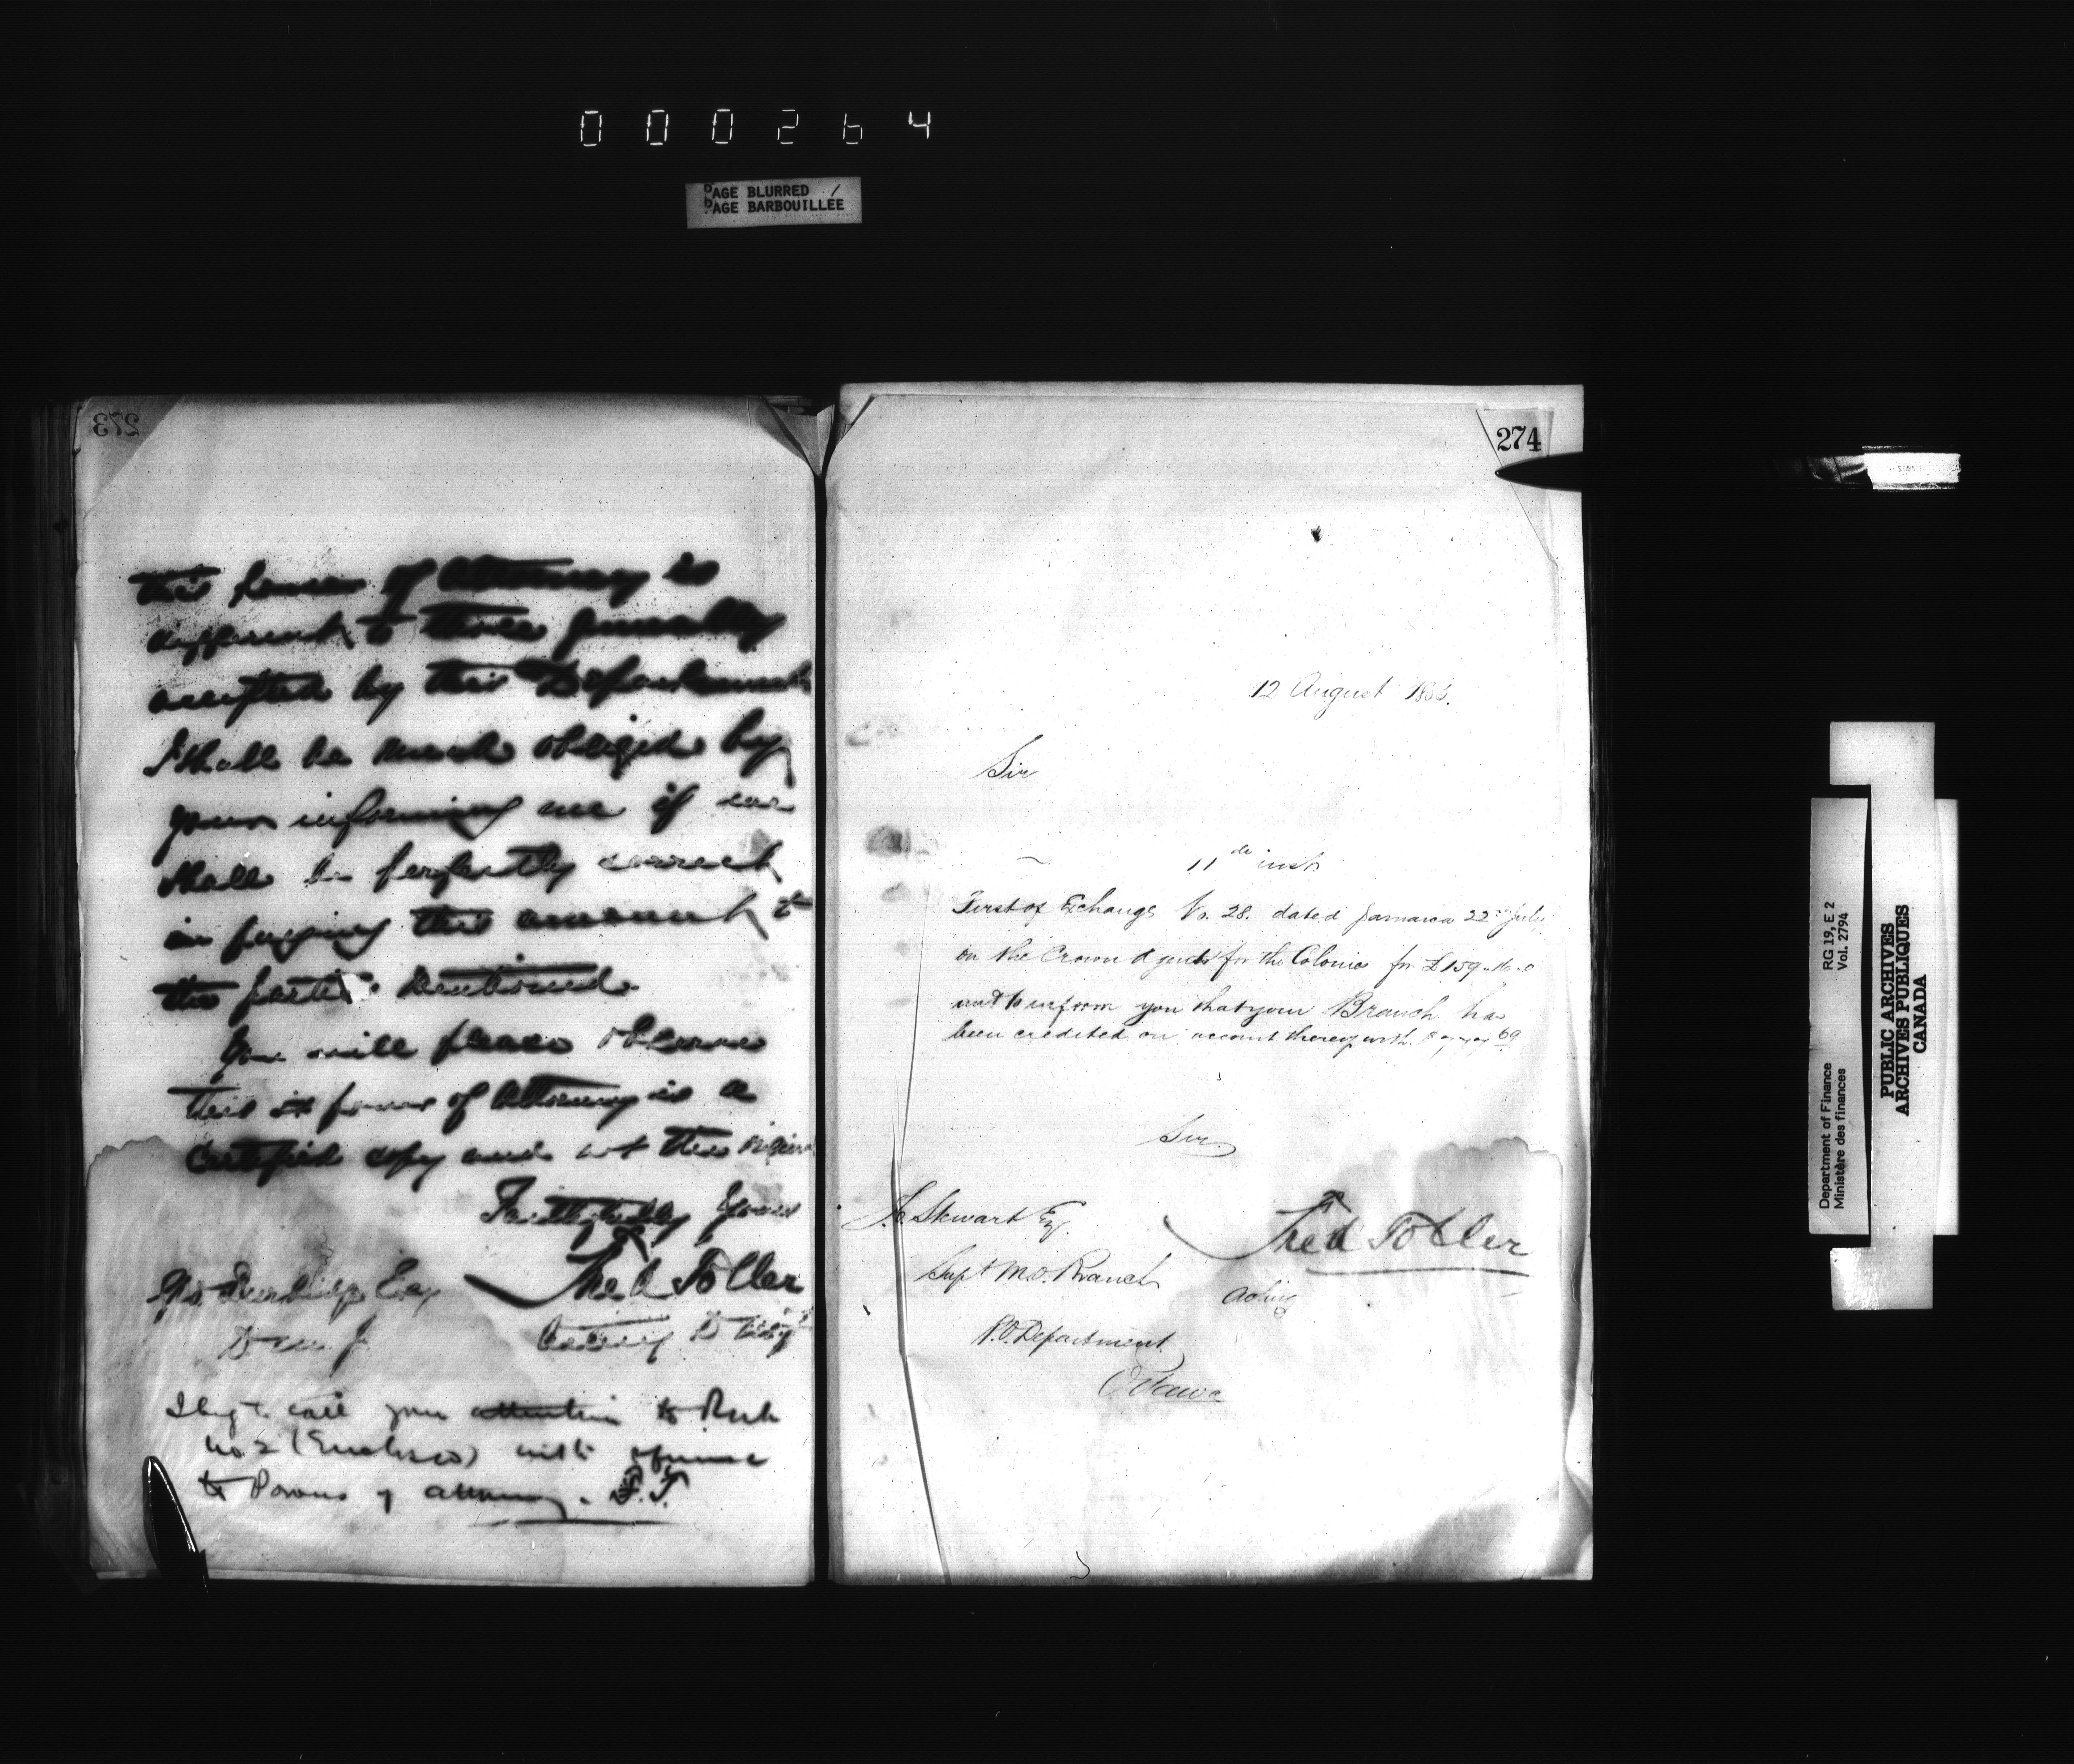 000264
PAGE BLURRED
PAGE BARBOUILLÉE
273
this power of Attorney is
different to those generally
accepted by this Department
I shall be much obliged by
your informing me if we
shall be perfectly correct
in paying this amount to
the parties mentioned.
You will please observe
this power of Attorney is a
Certified copy and not the original
Faithfully yours
Fred Toller
Esq
Acting
I beg to call your attention to Rule
No 2 (Enclosed) with reference
to Powers of attorney. F.T.
274
12 August 1886.
Sir
11th inst
First of Exchange No. 28. dated Jamaica 22nd July
on the Crown Agents for the Colonies for £159.16.0
and to inform you that your Branch has
been credited on account thereof with
Sir
Stewart Esq.
Fred Toller
Supt M.O. Branch
Acting
P.O. Department
Ottawa
Department of Finance
Ministère des finances
RG 19, E 2
Vol. 2794
PUBLIC ARCHIVES
ARCHIVES PUBLIQUES
CANADA